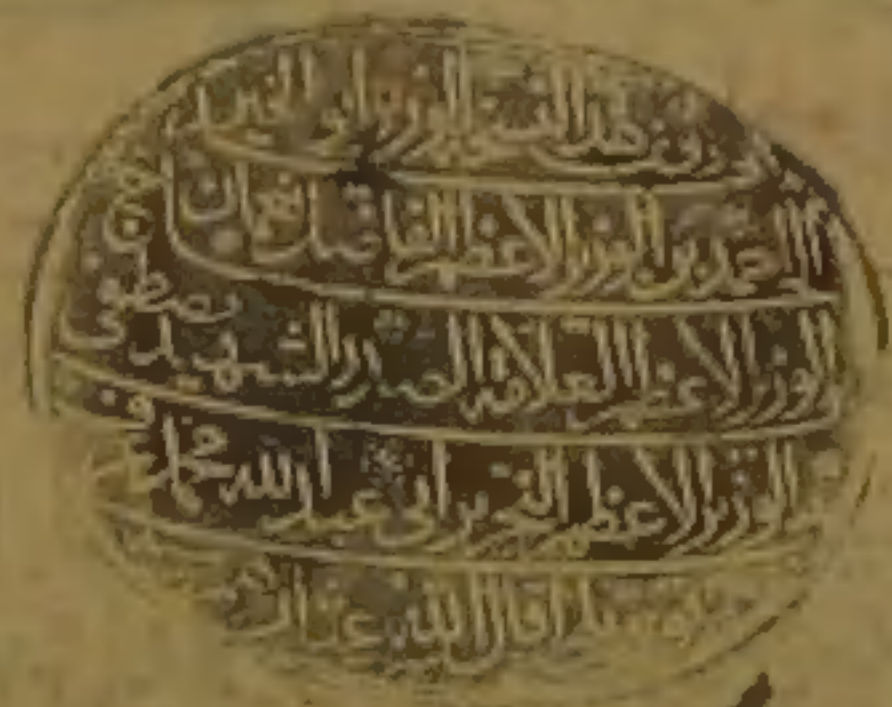 وقف هذا الفقير الوزير ابو الخير
احمد بن الوزير الاعظم الفاضل نعمان بن
الوزير الاعظم العلامة الصدر الشهيد مصطفى
الوزير الاعظم النحرير ابى عبد الله محمد
اقال الله